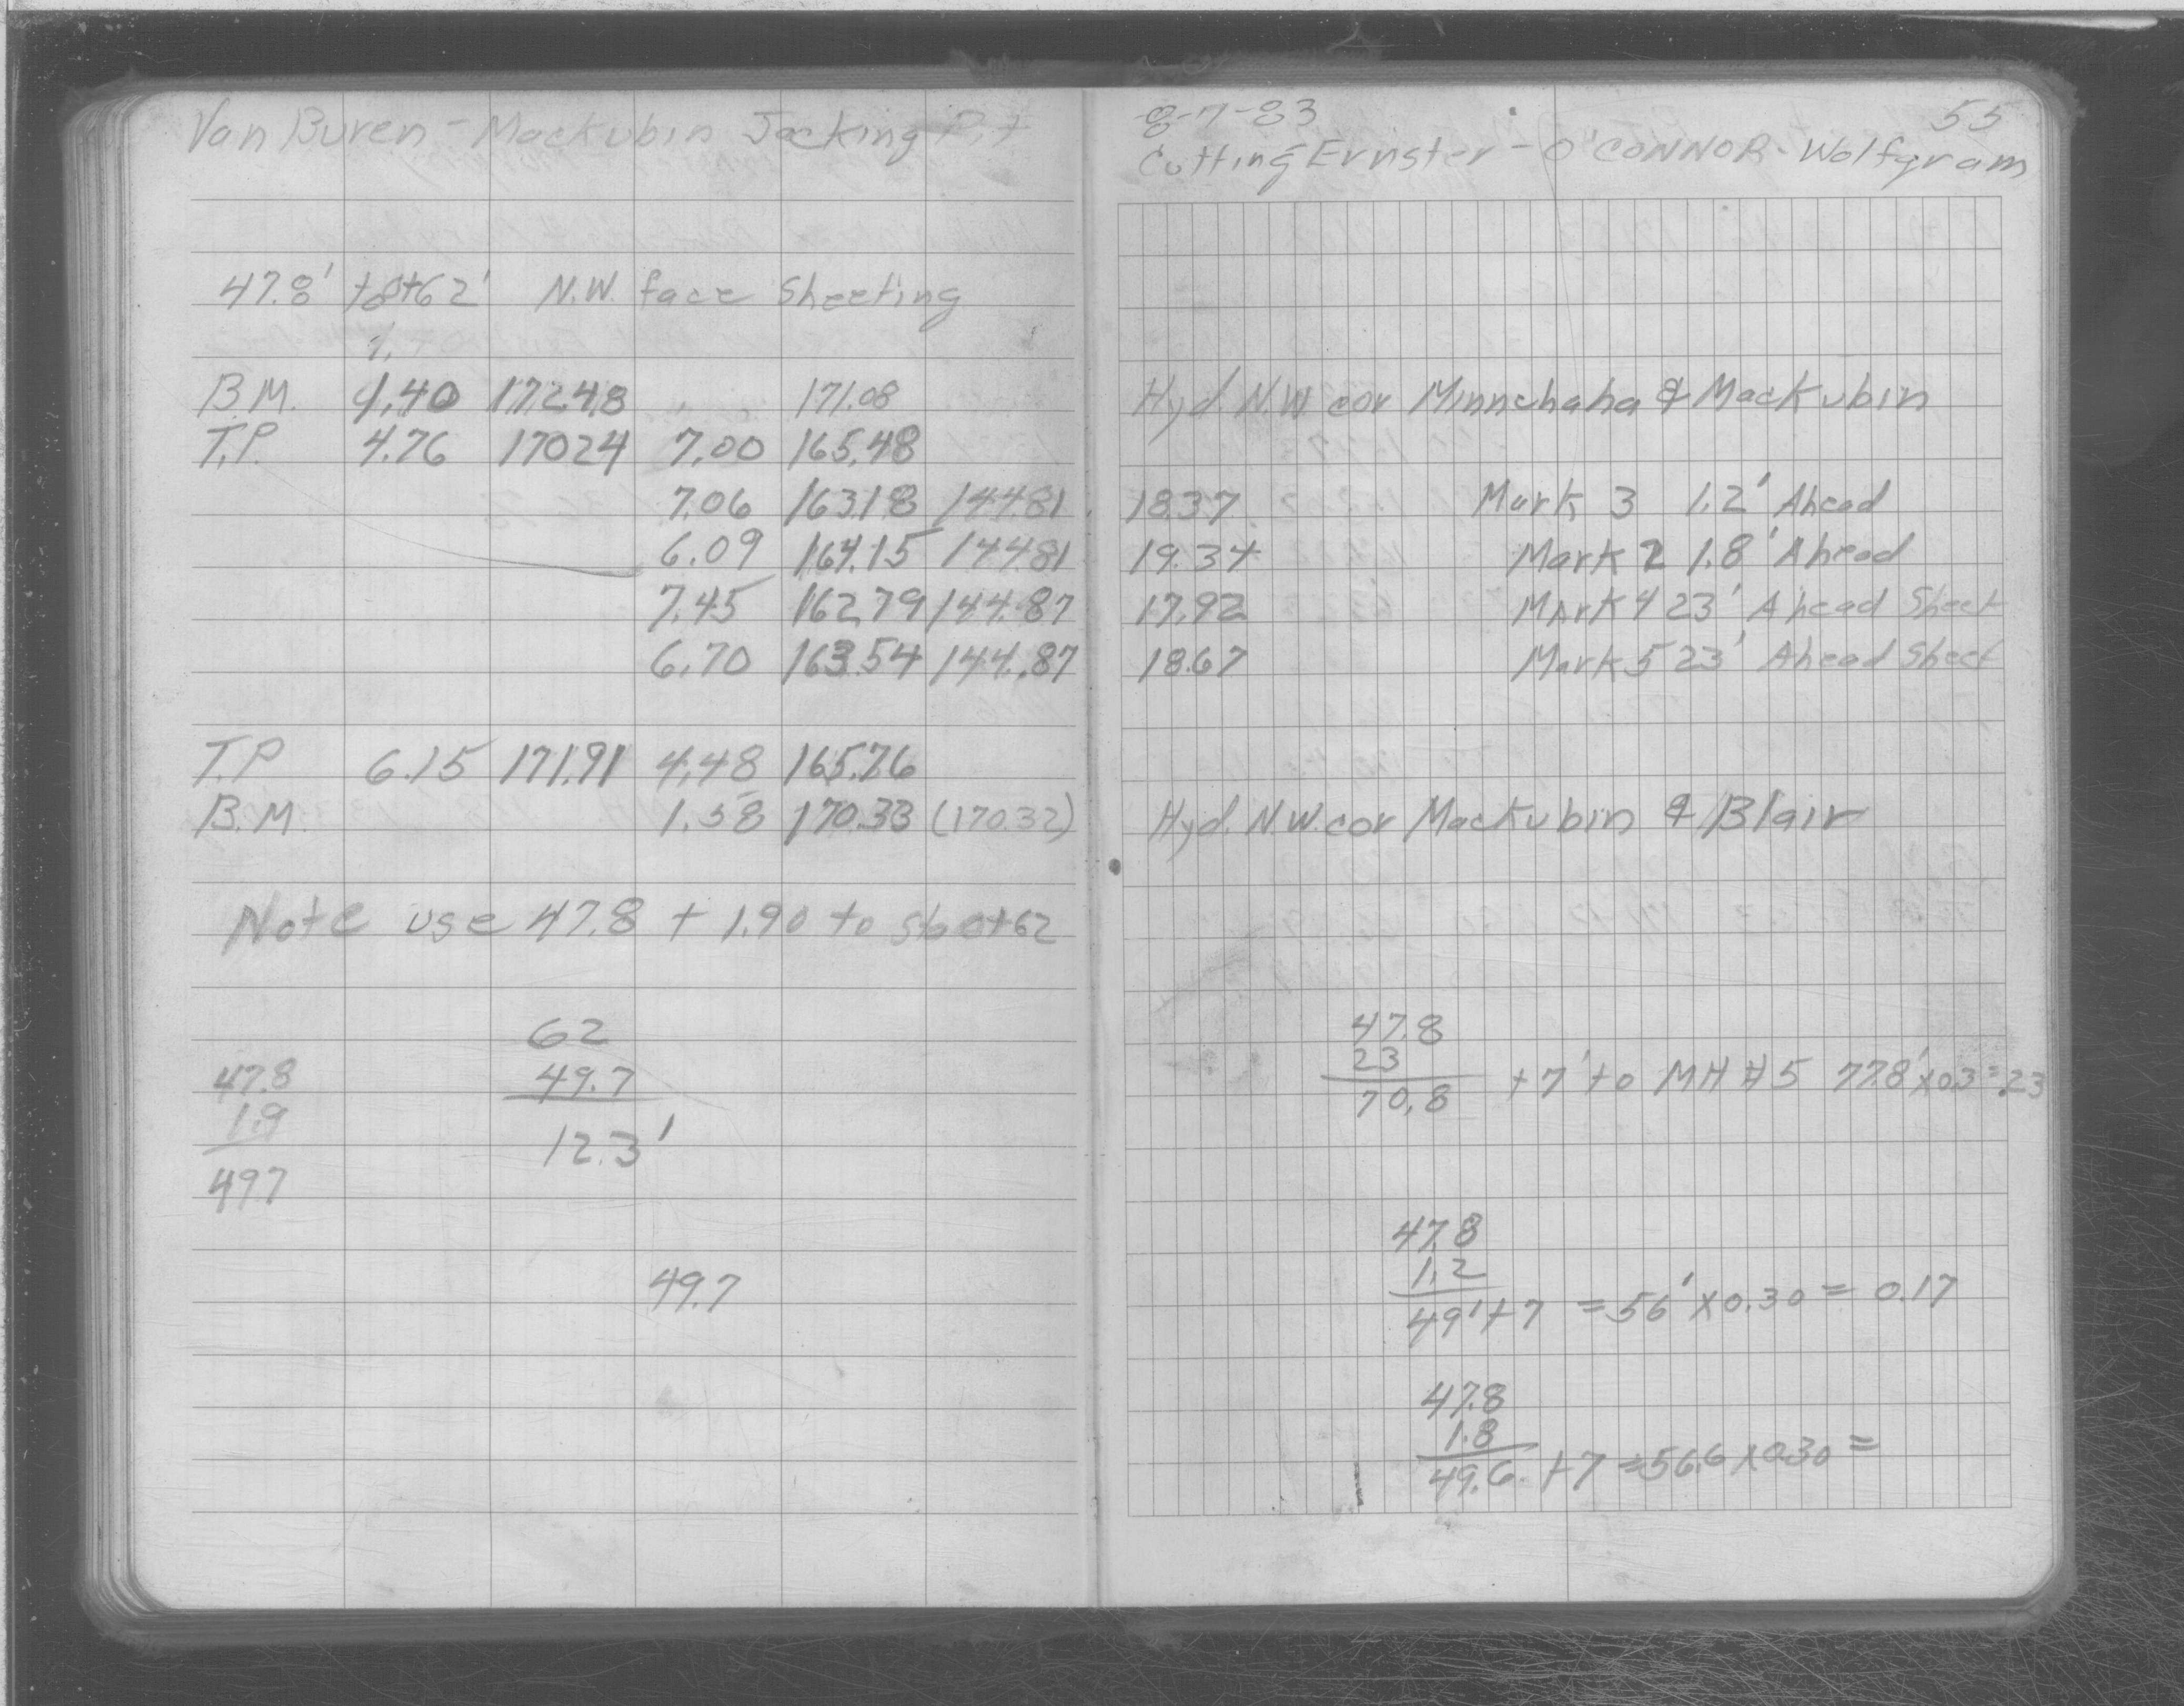 Van Buren - Mackubin Jacking Pit
47.8' to 0+62' N.W. face Sheeting
1.
B.M. 1.40 172.48 171.08
T.P. 4.76 170.24 7.00 165.48
7.06 163.18 144.81
6.09 164.15 144.81
7.45 162.79 144.87
6.70 163.54 144.87
T.P 6.15 171.91 4.48 165.76
B.M. 1.58 170.33 (170.32)
Note use 47.8 + 1.90 to sta 0+62
62
49.7
12.3'
47.8
1.9
497
49.7
8-7-83
55
Cutting Ernster - O'CONNOR - Wolfgram
Hyd. N.W cor Minnehaha & Mackubin
18.37 Mark 3 1.2' Ahead
19.34 Mark 2 1.8' Ahead
17.92 Mark 4 23' Ahead Sheet
18.67 Mark 5 23' Ahead Sheet
Hyd. N.W. cor Mackubin & Blair
47.8
23
70.8 +7' to MH #5 77.8' x 03 = .23
47.8
1.2
49'+7 = 56' x 0.30 = 0.17
47.8
1.8
49.6 +7 = 56.6 x 0.30 =